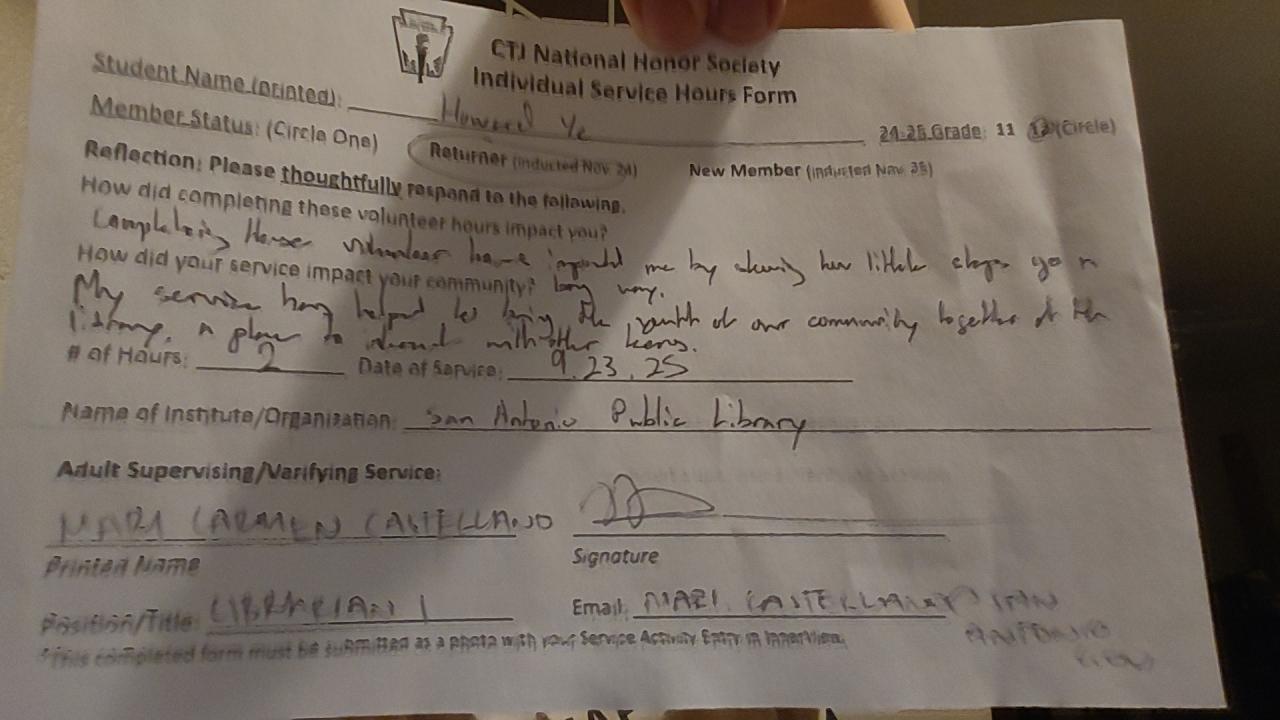 CTJ National Honor Society
Individual Service Hours Form
Student Name (printed): Howard Ye
24-25 Grade: 11 12 (Circle)
Member Status: (Circle One) Returner (Inducted Nov. 24) New Member (Inducted Nov. 25)
Reflection: Please thoughtfully respond to the following.
How did completing these volunteer hours impact you?
Completing these volunteer have me by showing how little steps go a
How did your service impact your community? long way.
My service has helped to bring the youth of our community together at the
library, a place to with other teens.
# of Hours: 2 Date of Service: 9.23.25
Name of Institute/Organization: San Antonio Public Library
Adult Supervising/Verifying Service:
MARI CARMEN CASTELLANO
Printed Name Signature
Position/Title: LIBRARIAN I Email: MARI.CASTELLANO@SAN
ANTONIO
*This completed form must be submitted as a photo with your Service Activity Entry in Innerview.